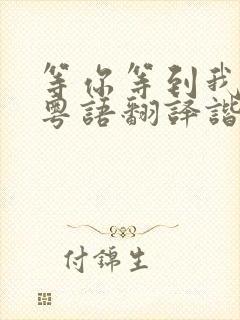 等你等到我
粤語翻譯諧
付錦生